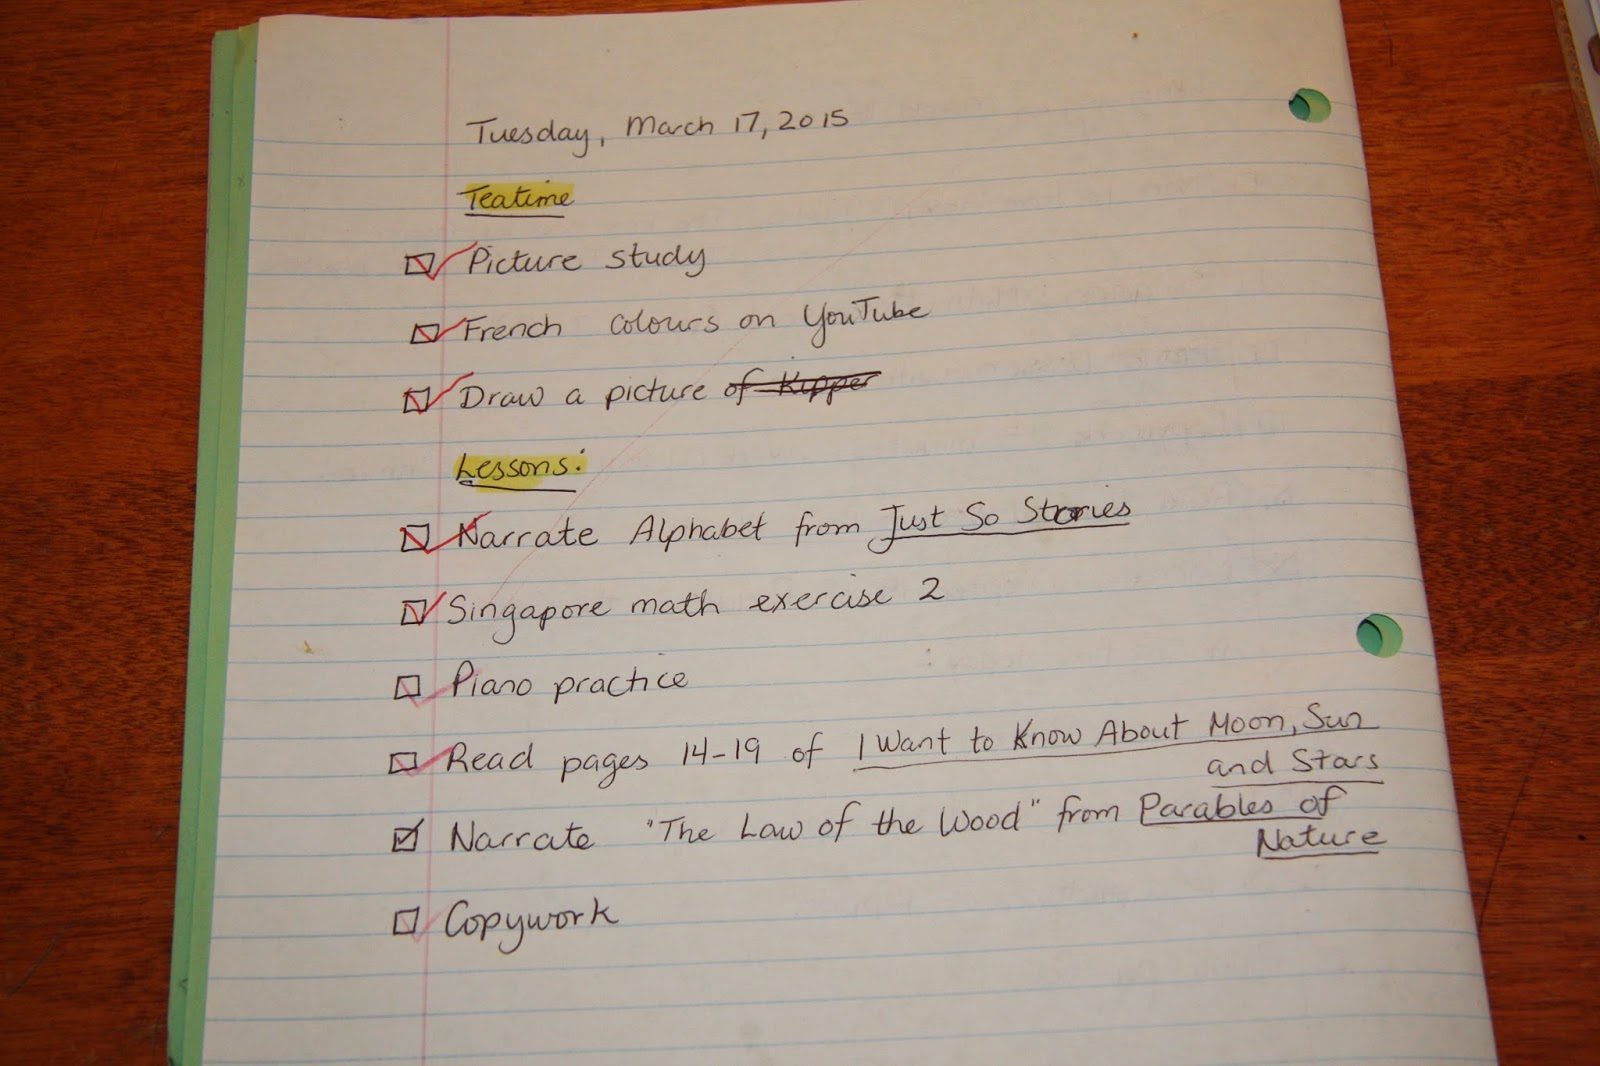 Tuesday, March 17, 2015
Teatime
Picture study
French colours on YouTube
Draw a picture of Kipper
Lessons:
Narrate Alphabet from Just So Stories
Singapore math exercise 2
Piano practice
Read pages 14-19 of I Want to Know About Moon, Sun
and Stars
Narrate "The Law of the Wood" from Parables of
Nature
Copywork